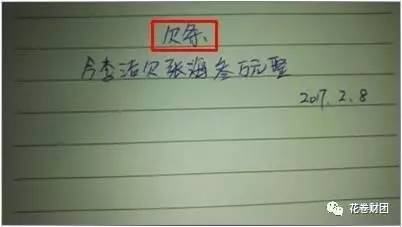 欠条、
今李洁欠张海叁万元整
2017.2.8
花卷财团